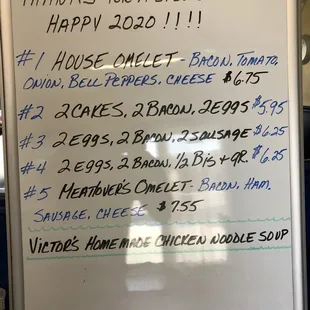 HAPPY 2020 !!!!
#1 HOUSE OMELET - BACON, TOMATO,
ONION, BELL PEPPERS, CHEESE $6.75
#2 2 CAKES, 2 BACON, 2 EGGS $5.95
#3 2 EGGS, 2 BACON, 2 SAUSAGE $6.25
#4 2 EGGS, 2 BACON, 1/2 BIS + GR. $6.25
#5 MEATLOVER'S OMELET - BACON, HAM,
SAUSAGE, CHEESE $7.55
VICTOR'S HOMEMADE CHICKEN NOODLE SOUP